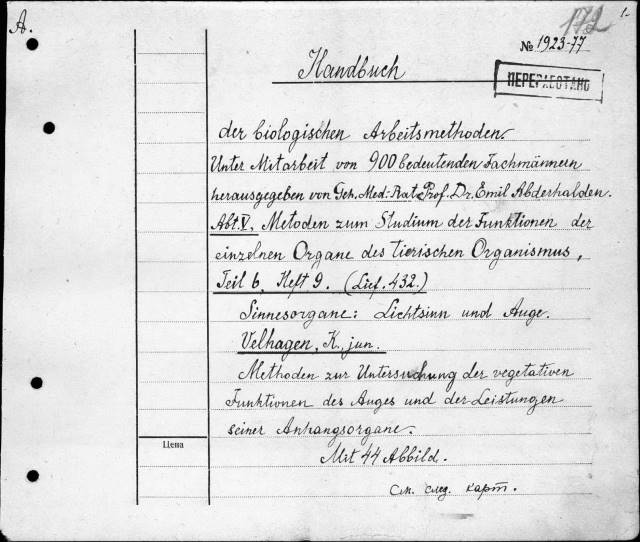 A.
172
1-
№ 1923-77
Handbuch
ПЕРЕРАБОТАНО
der biologischen Arbeitsmethoden
Unter Mitarbeit von 900 bedeutenden Fachmännern
herausgegeben von Geh. Med: Rat Prof. Dr. Emil Abderhalden.
Abt. V, Metoden zum Studium der Funktionen der
einzelnen Organe des tierischen Organismus,
Teil 6, Heft 9. (Lief. 432.)
Sinnesorgane: Lichtsinn und Auge.
Velhagen, K. jun.
Methoden zur Untersuchung der vegetativen
Funktionen des Auges und der Leistungen
seiner Anhangsorgane.
Цена
Mit 44 Abbild.
См. след. карт.